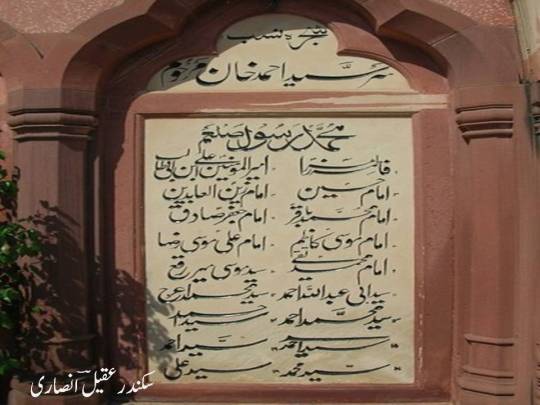 شجرہ نسب
سر سید احمد خان مرحوم
محمد رسول صلعم
فاطمہ زہرا - امیر المومنین علی ابن ابی طالب
امام حسین - امام زین العابدین
امام محمد باقر - امام جعفر صادق
امام موسی کاظم - امام علی موسی رضا
امام محمد تقی - سید موسی مبرقع
سید ابی عبد اللہ احمد - سید محمد اعرج
سید محمد احمد - سید احمد
سید احمد - سید احمد
سید محمد - سید علی
سکندر عقیل انصاری